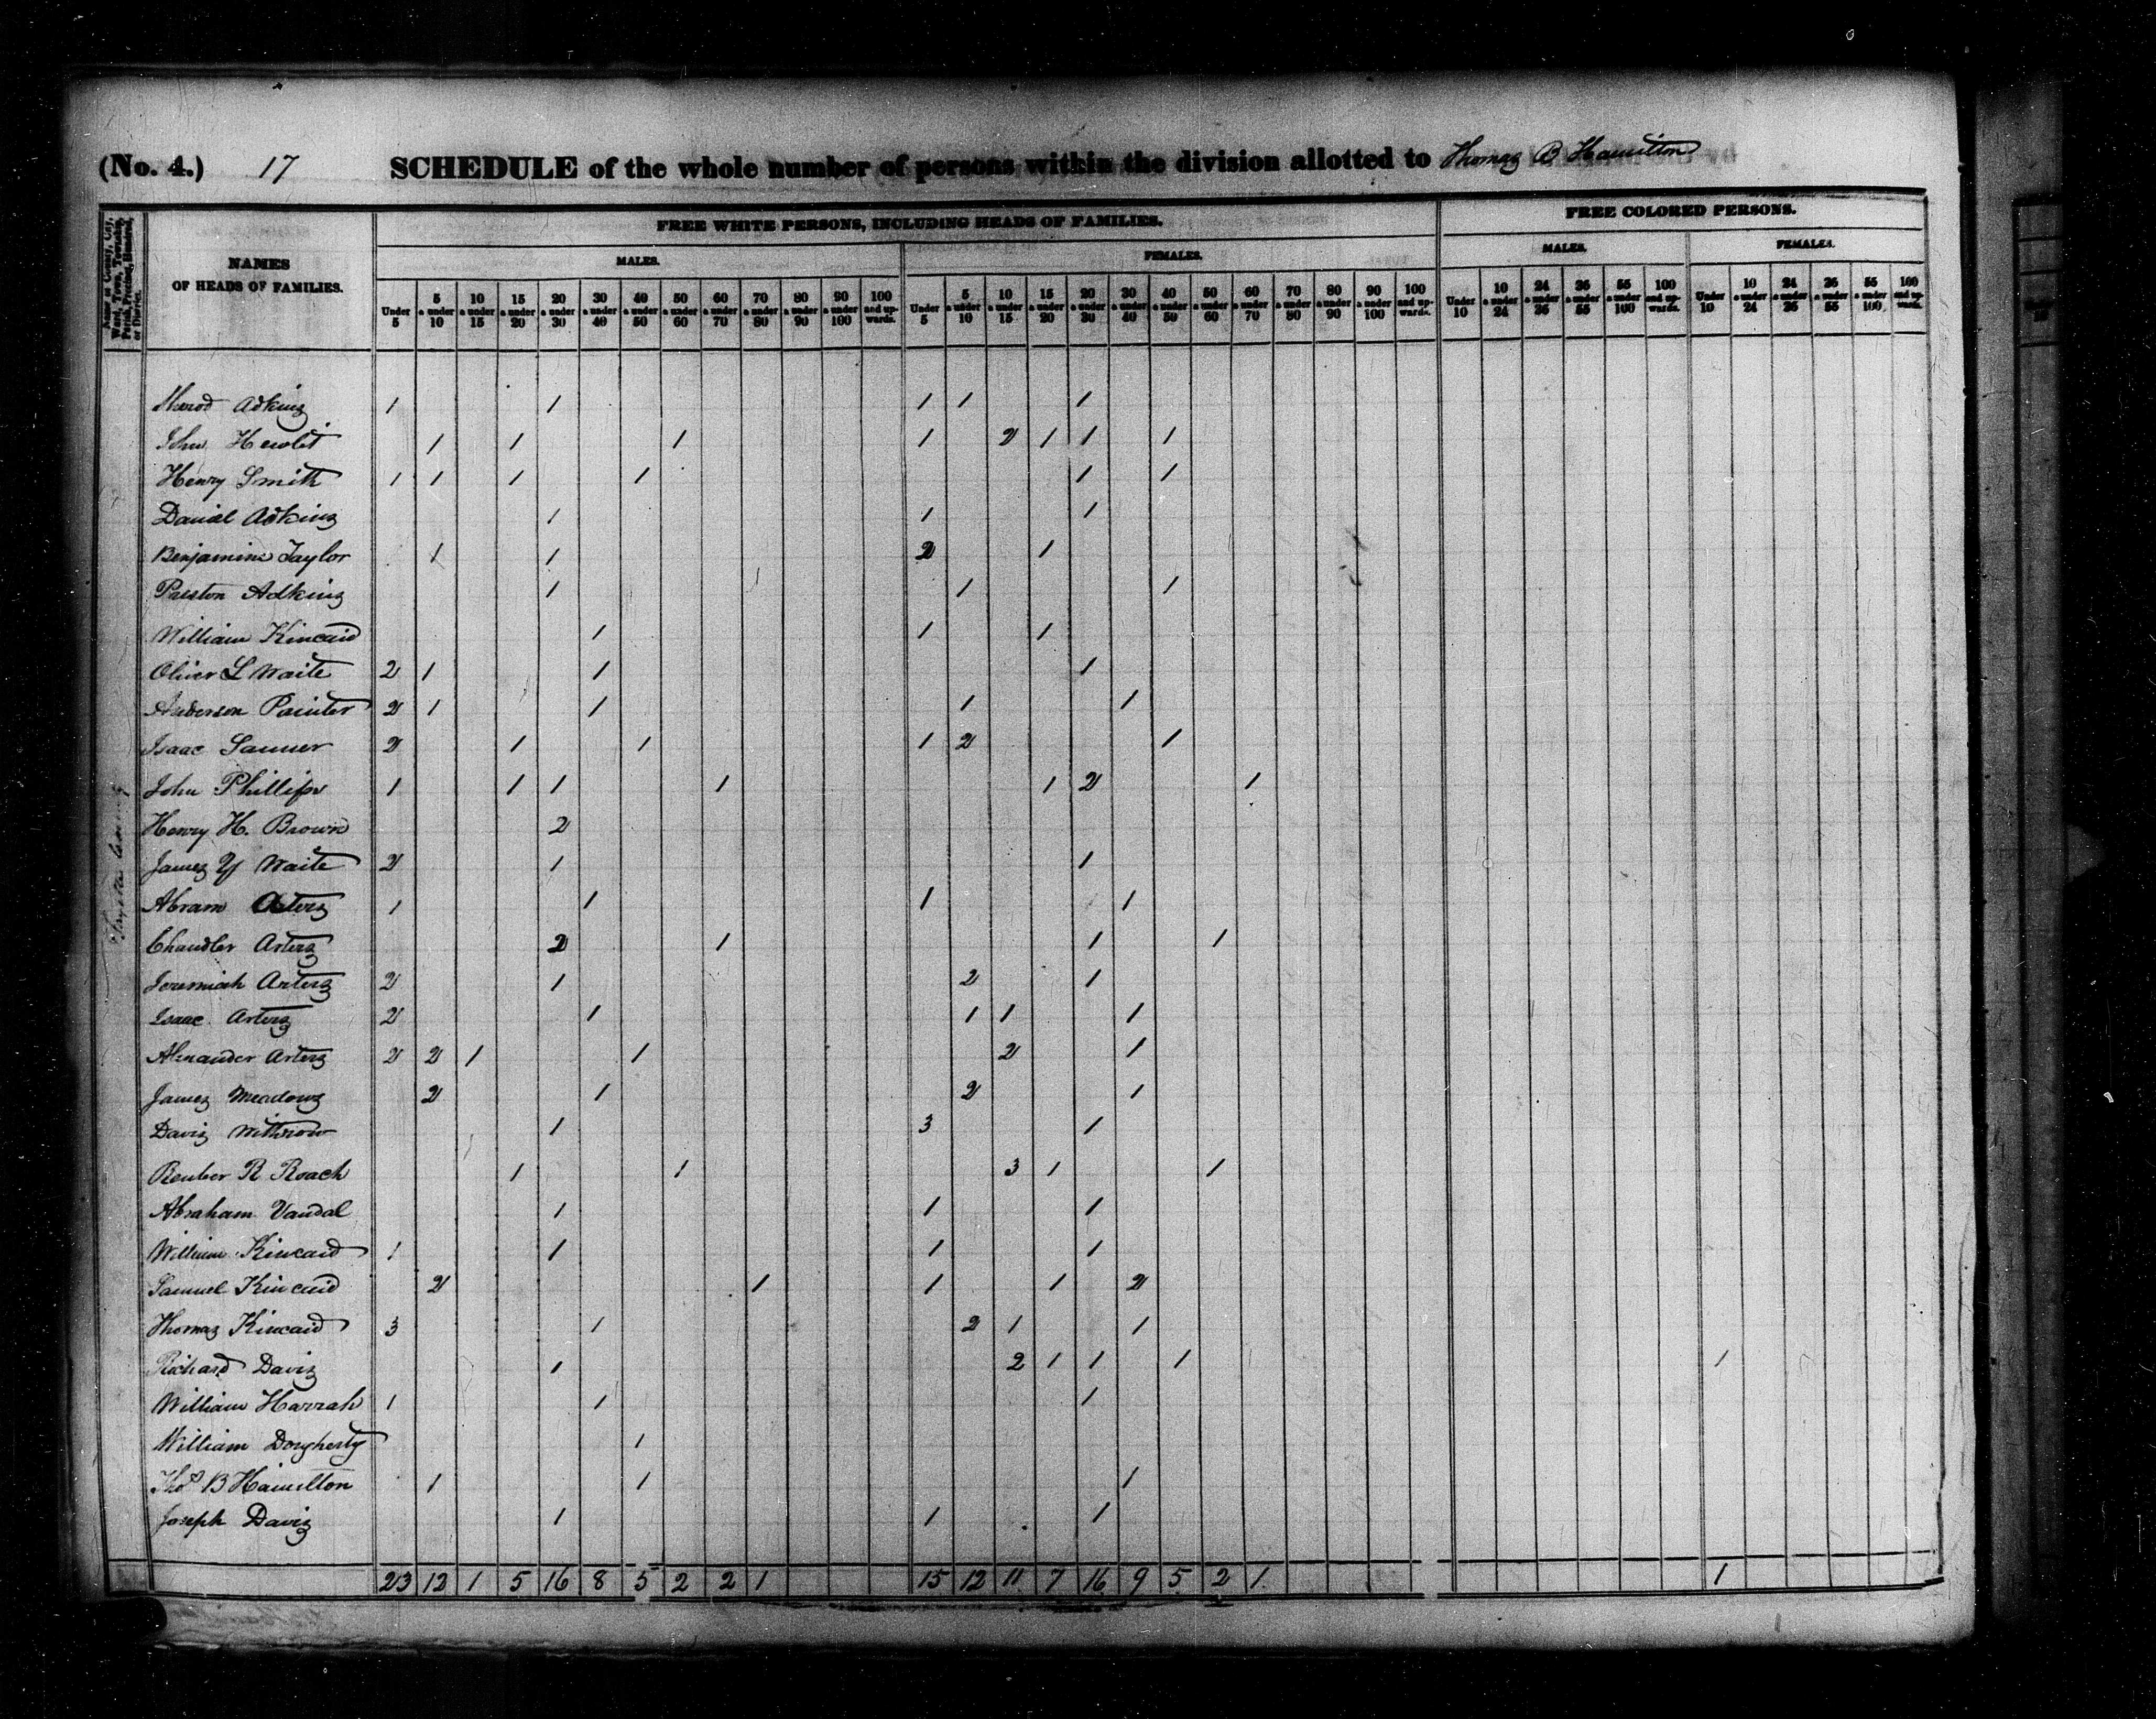 (No. 4.) 17 SCHEDULE of the whole number of persons within the division allotted to Thomas B Hamilton
FREE WHITE PERSONS, INCLUDING HEADS OF FAMILIES. FREE COLORED PERSONS.
MALES. FEMALES. MALES. FEMALES.
Name of County, City, Ward, Town, Township, Parish, Precinct, Hundred, or District.
NAMES OF HEADS OF FAMILIES.
Under 5 5 & under 10 10 & under 15 15 & under 20 20 & under 30 30 & under 40 40 & under 50 50 & under 60 60 & under 70 70 & under 80 80 & under 90 90 & under 100 100 and upwards. Under 5 5 & under 10 10 & under 15 15 & under 20 20 & under 30 30 & under 40 40 & under 50 50 & under 60 60 & under 70 70 & under 80 80 & under 90 90 & under 100 100 and upwards. Under 10 10 & under 24 24 & under 36 36 & under 55 55 & under 100 100 and upwards. Under 10 10 & under 24 24 & under 36 36 & under 55 55 & under 100 100 and upwards.
Sherod Adkins 1 1 1 1 1
John Hewlet 1 1 1 1 2 1 1 1
Henry Smith 1 1 1 1 1 1
Daniel Adkins 1 1 1
Benjamine Taylor 1 1 2 1
Preston Adkins 1 1 1
William Kincaid 1 1 1
Oliver L Waite 2 1 1 1
Anderson Painter 2 1 1 1 1
Isaac Sanner 2 1 1 1 2 1
John Phillips 1 1 1 1 1 2 1
Henry H. Brown 2
James Waite 2 1 1
Abram Arters 1 1 1 1
Chandler Arters 2 1 1 1
Jeremiah Arters 2 1 2 1
Isaac Arters 2 1 1 1 1
Alexander Arters 2 2 1 1 2 1
James Meadows 2 1 2 1
Davis Withrow 1 3 1
Reuber R Roach 1 1 3 1 1
Abraham Vandal 1 1 1
William Kincaid 1 1 1 1
Samuel Kincaid 2 1 1 1 2
Thomas Kincaid 3 1 2 1 1
Richard Davis 1 2 1 1 1 1
William Harrah 1 1 1
William Dorgherty 1
Thos B Hamilton 1 1 1
Joseph Davis 1 1 1
23 12 1 5 16 8 5 2 2 1 15 12 11 7 16 9 5 2 1 1